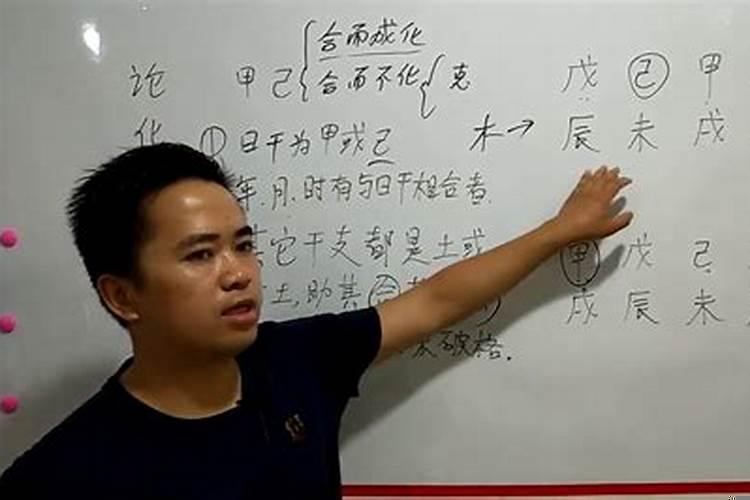 合而成化
论 甲己 合而不化 克 戊 己 甲
化 ① 日干为甲或己 木→ 辰 未 戌
年.月.时有与日干相合者.
其它干支都是土或 甲 戊 己
土,助其合 戌 辰 未
破格.